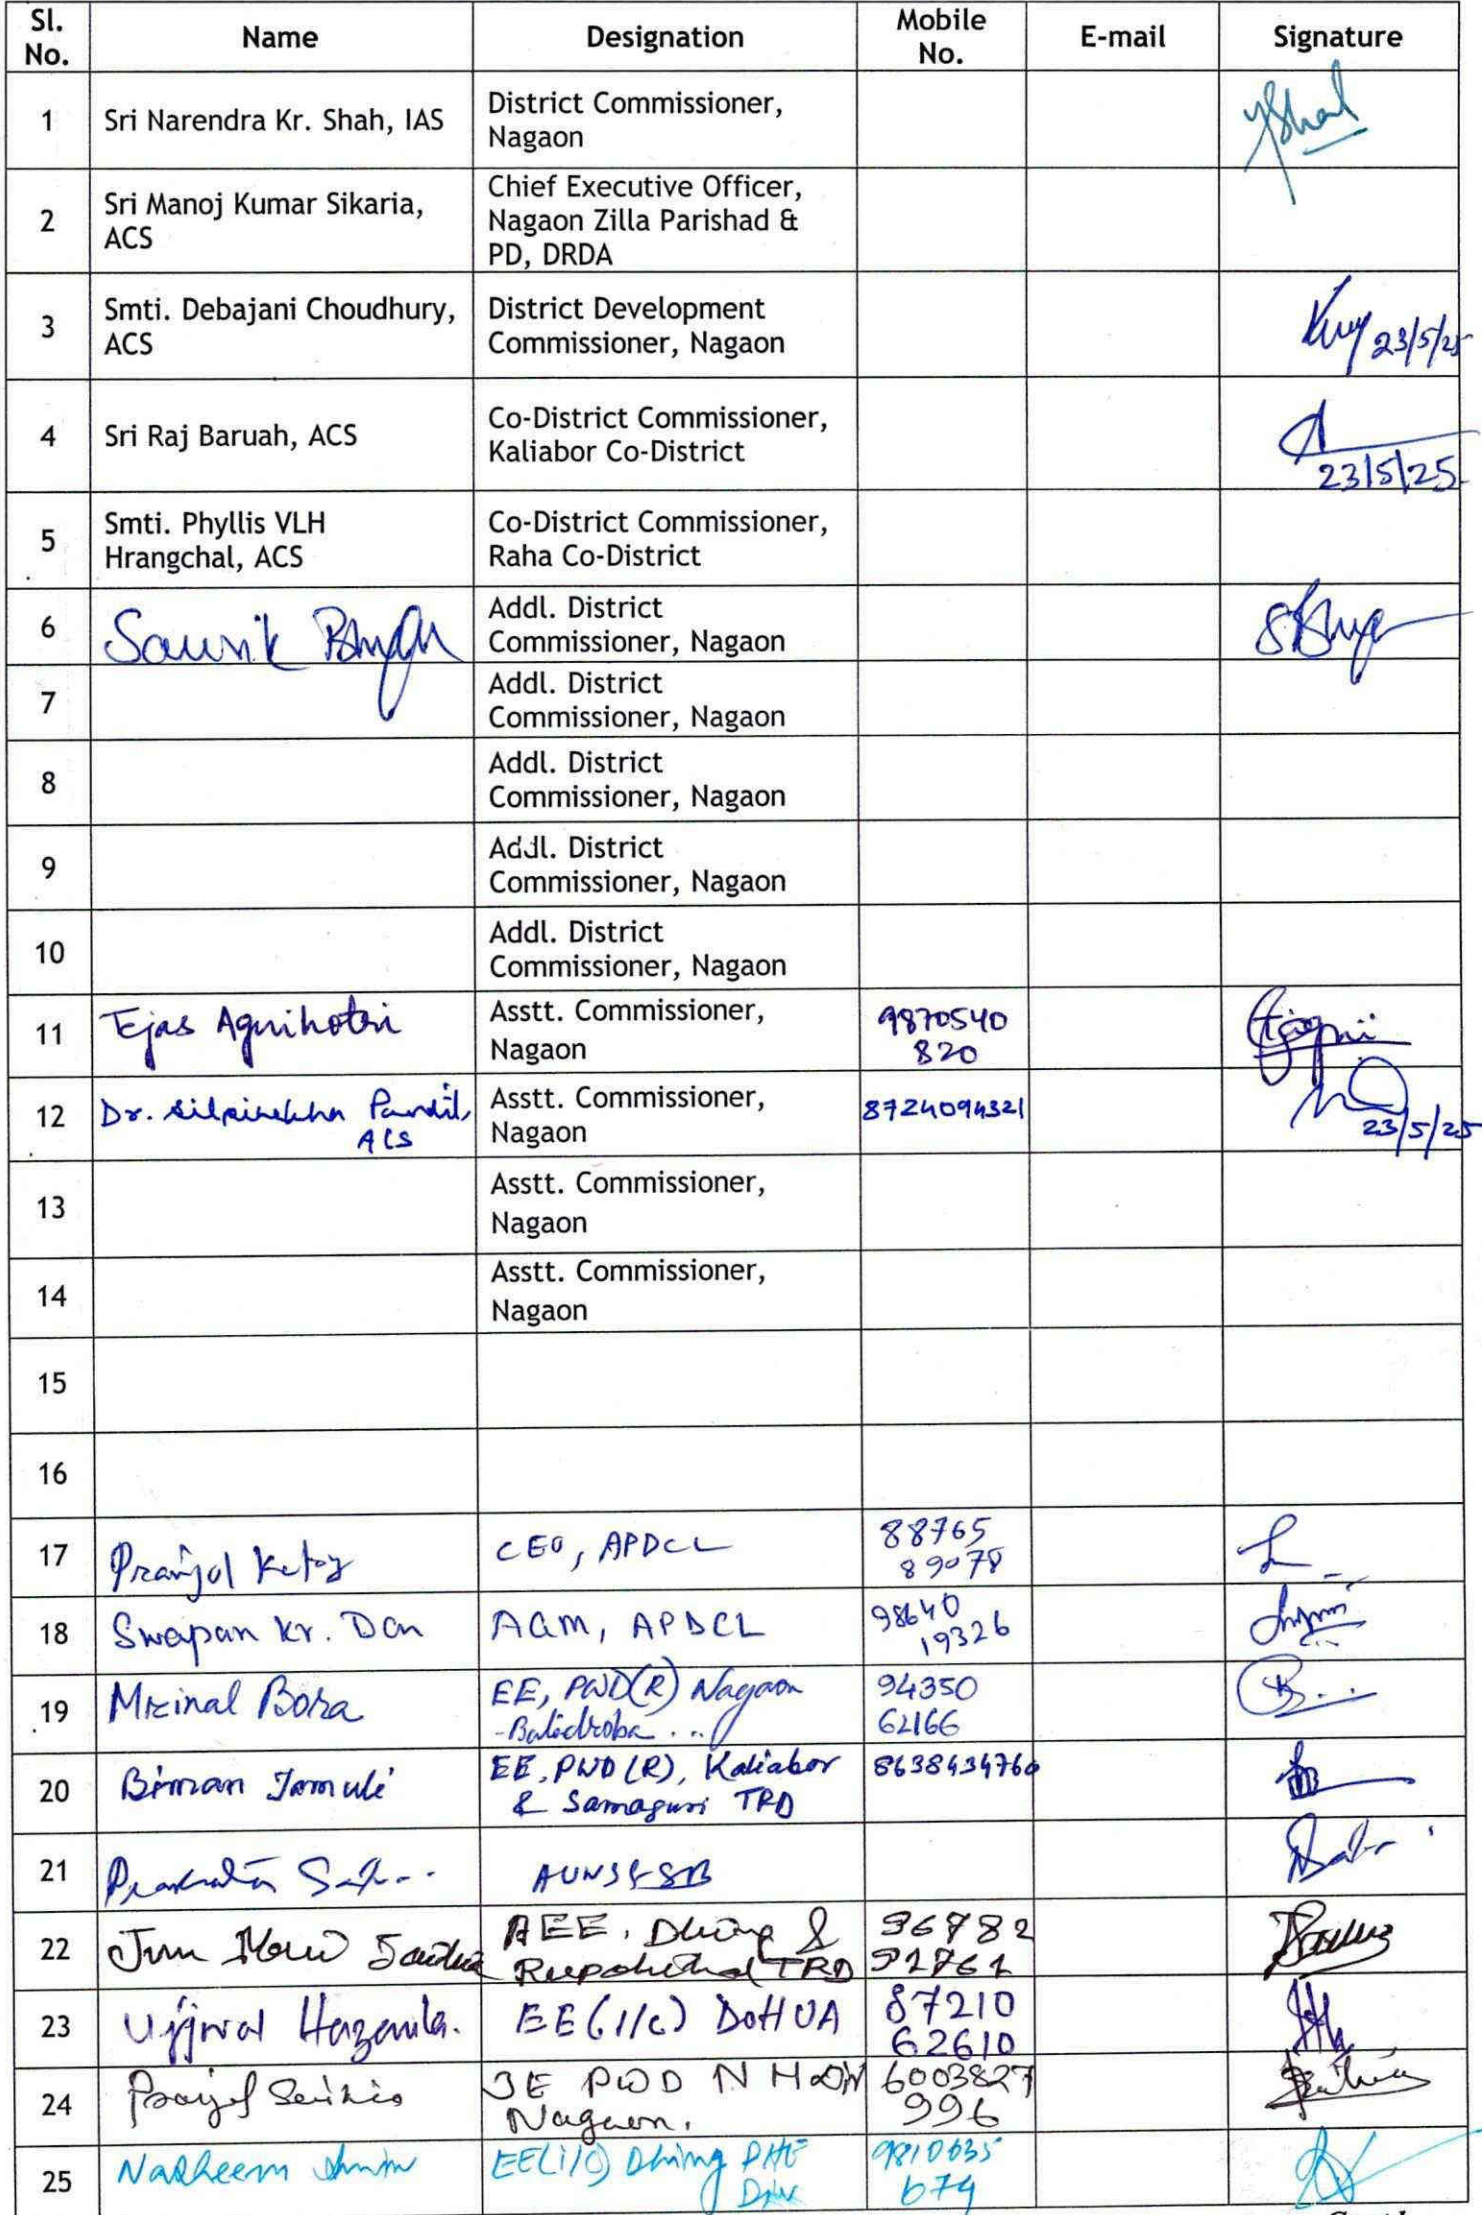 Sl. No. Name Designation Mobile No. E-mail Signature
1 Sri Narendra Kr. Shah, IAS District Commissioner,
Nagaon
2 Sri Manoj Kumar Sikaria,
ACS
Chief Executive Officer,
Nagaon Zilla Parishad &
PD, DRDA
3 Smti. Debajani Choudhury,
ACS
District Development
Commissioner, Nagaon
23/5/25
4 Sri Raj Baruah, ACS Co-District Commissioner,
Kaliabor Co-District
23/5/25
5 Smti. Phyllis VLH
Hrangchal, ACS
Co-District Commissioner,
Raha Co-District
6 Addl. District
Commissioner, Nagaon
7 Addl. District
Commissioner, Nagaon
8 Addl. District
Commissioner, Nagaon
9 Addl. District
Commissioner, Nagaon
10 Addl. District
Commissioner, Nagaon
11 Tejas Agnihotri Asstt. Commissioner,
Nagaon
9870540
820
12 Dr. Pandit,
ACS
Asstt. Commissioner,
Nagaon
8724094321
23/5/25
13 Asstt. Commissioner,
Nagaon
14 Asstt. Commissioner,
Nagaon
15
16
17 Pranjol CEO, APDCL 88765
89078
18 Swapan Kr. AGM, APDCL 98640
19326
19 Mrinal Bora EE, PWD(R) Nagaon
94350
62166
20 Biman Jamuli EE, PWD (R), Kaliabor
& Samaguri TRD
8638434760
21
22 AEE, Dhing &
TRD
96782
23 Ujjwal Hazarika. EE(I/C) DoHUA 87210
62610
24 PWD
Nagaon.
6003827
996
25 EE(i/c) Dhing PHE
Divn
9810635
674